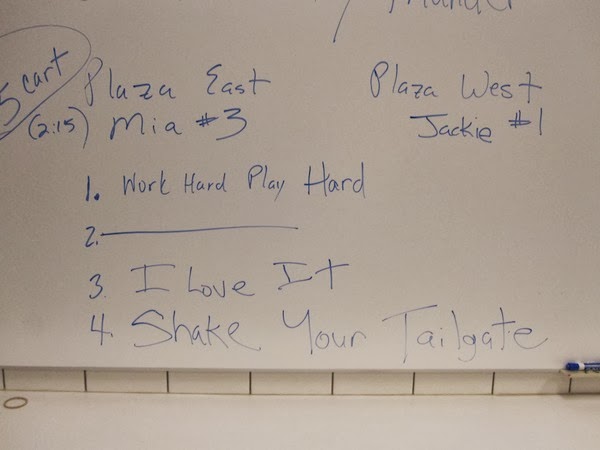 5 cart
Plaza East
Plaza West
(2:15) Mia #3
Jackie #1
1. Work Hard Play Hard
2.
3. I Love It
4. Shake Your Tailgate